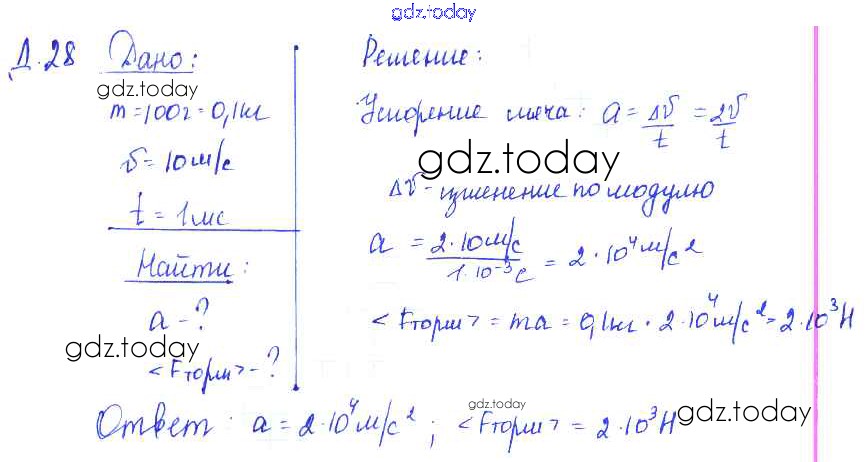 gdz.today
Д.28 Дано:
gdz.today
m=100г=0,1кг
v=10м/с
t=1мс
Найти:
a-?
gdz.today
<Fторм>-?
Решение:
Ускорение мяча: a=Δv/t=2v/t
gdz.today
Δv-изменение по модулю
a=2·10м/с/1·10⁻³с=2·10⁴м/с²
<Fторм>=ma=0,1кг·2·10⁴м/с²=2·10³Н
gdz.today
gdz.today
Ответ: a=2·10⁴м/с²; <Fторм>=2·10³Н